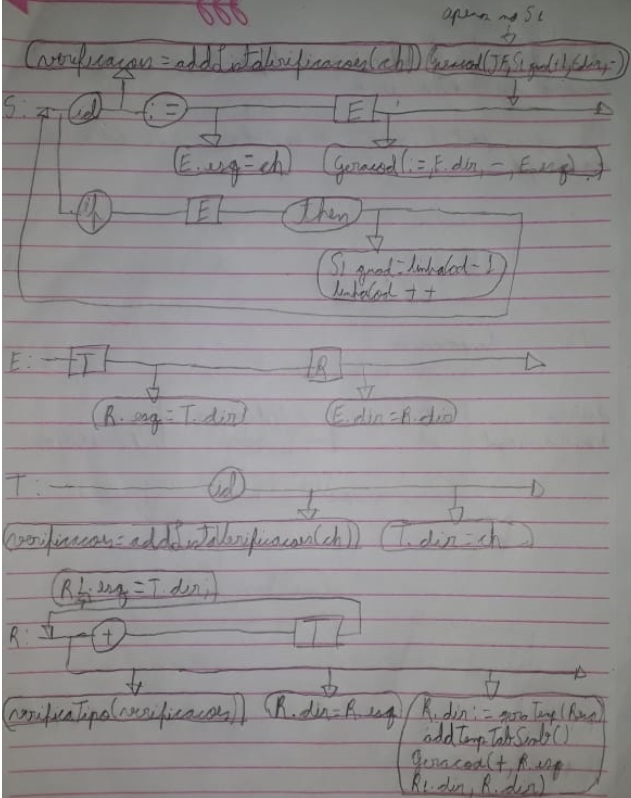 666
apenas no S1
verificacoes = addListaVerificacoes(ch) Geracod(JF, S1.quad+1, E.dir, -)
S: id := E
E.esq = ch Geracod(:=, E.dir, -, E.esq)
if E then
S1.quad = linhaCod - 1
linhaCod ++
E: T R
R.esq = T.dir E.dir = R.dir
T: id
verificacoes = addListaVerificacoes(ch) T.dir = ch
R1.esq = T.dir;
R: + T
verificaTipo(verificacoes) R.dir = R.esq R.dir :=
addTempTabSimb()
Geracod(+, R.esq
R1.dir, R.dir)